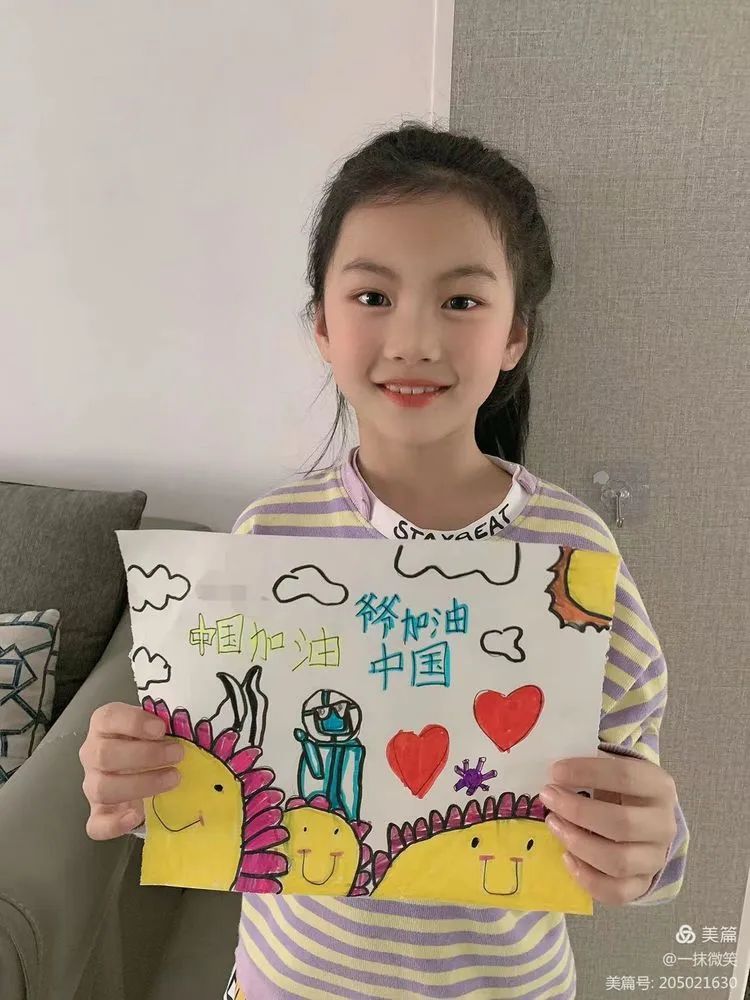 STAY BEAT
中国加油
爷加油
中国
美篇
@一抹微笑
美篇号: 205021630